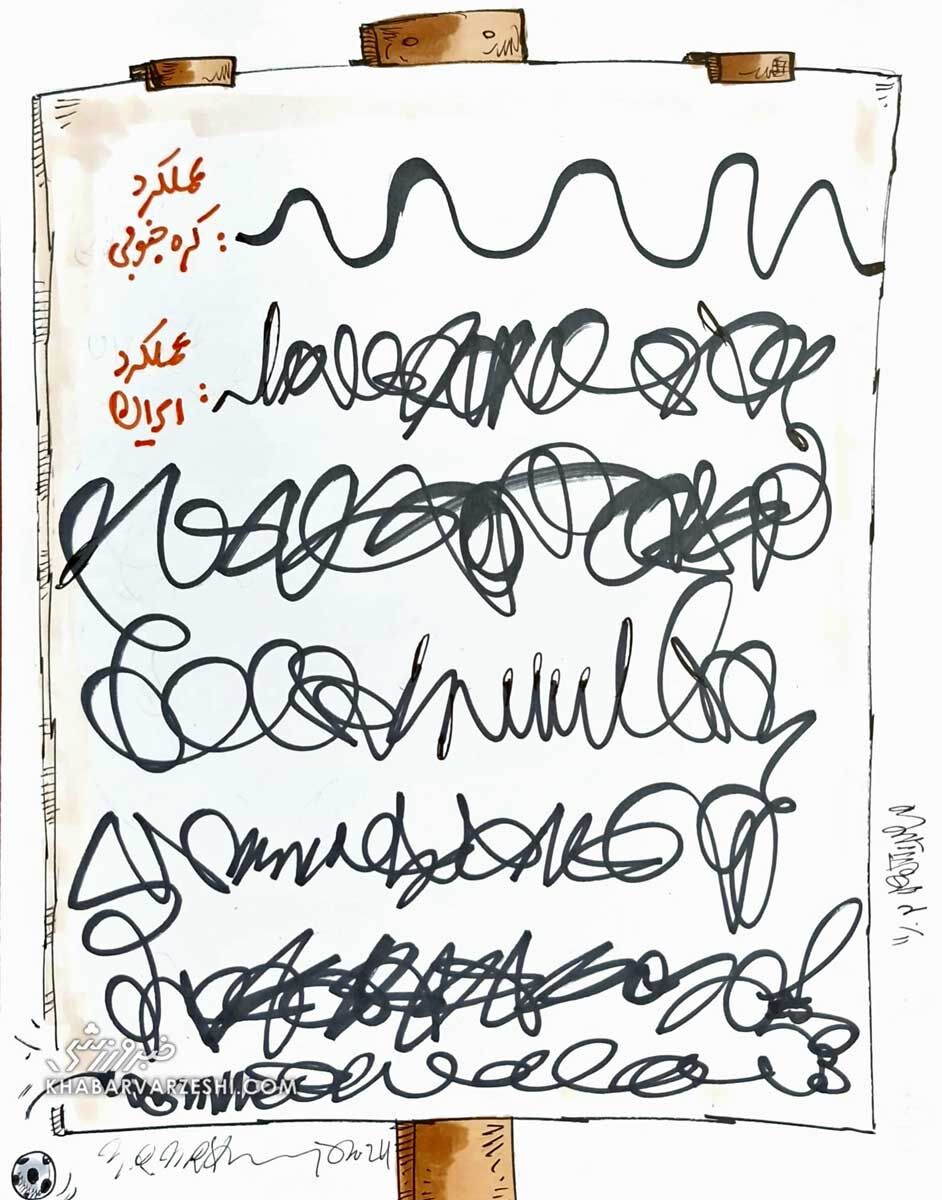 عملکرد
کره جنوبی :
عملکرد
ایران :
خبرورزشی
KHABARVARZESHI.COM
2024